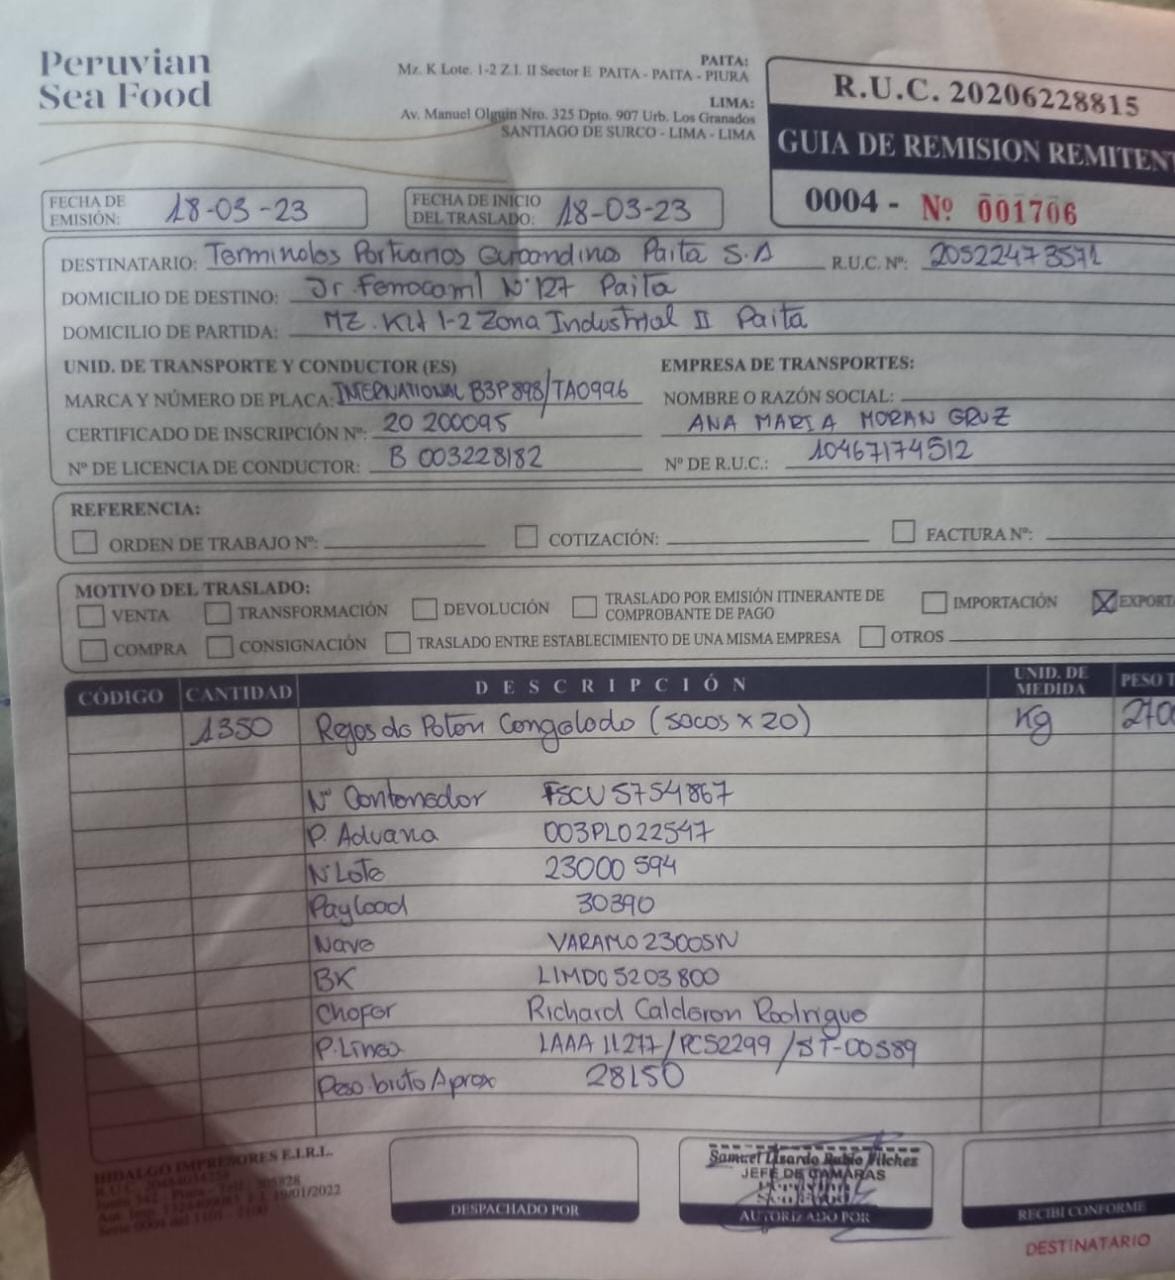 Peruvian
Sea Food
PAITA:
Mz. K Lote. 1-2 Z.I. II Sector E PAITA - PAITA - PIURA
LIMA:
Av. Manuel Olguin Nro. 325 Dpto. 907 Urb. Los Granados
SANTIAGO DE SURCO - LIMA - LIMA
R.U.C. 20206228815
GUIA DE REMISION REMITEN
0004 - Nº 001706
FECHA DE EMISIÓN: 18-03-23
FECHA DE INICIO DEL TRASLADO: 18-03-23
DESTINATARIO: Terminales Portuarios Euroandinos Paita S.A R.U.C. Nº: 20522473571
DOMICILIO DE DESTINO: Jr. Ferrocarril Nº 127 Paita
DOMICILIO DE PARTIDA: MZ. K Lt 1-2 Zona Industrial II Paita
UNID. DE TRANSPORTE Y CONDUCTOR (ES) EMPRESA DE TRANSPORTES:
MARCA Y NÚMERO DE PLACA: INTERNATIONAL B3P898/TA0996 NOMBRE O RAZÓN SOCIAL:
CERTIFICADO DE INSCRIPCIÓN Nº: 20 200095 ANA MARIA MORAN CRUZ
Nº DE LICENCIA DE CONDUCTOR: B 003228182 Nº DE R.U.C.: 10467174512
REFERENCIA:
ORDEN DE TRABAJO Nº: COTIZACIÓN: FACTURA Nº:
MOTIVO DEL TRASLADO:
VENTA TRANSFORMACIÓN DEVOLUCIÓN TRASLADO POR EMISIÓN ITINERANTE DE COMPROBANTE DE PAGO IMPORTACIÓN EXPORTA
COMPRA CONSIGNACIÓN TRASLADO ENTRE ESTABLECIMIENTO DE UNA MISMA EMPRESA OTROS
CÓDIGO CANTIDAD DESCRIPCIÓN UNID. DE MEDIDA PESO T
1350 Rejos de Poton Congelado (sacos x 20) Kg 270
Nº Contenedor FSCU 5754867
P. Aduana 003PL022547
N Lote 23000 594
Payload 30390
Nave VARAMO 2300SN
BK LIMD05203800
Chofer Richard Calderon Rodrigue
P. Linea LAAA 11277/PCS2299/ST-00589
Peso bruto Aprox 28150
HIDALGO IMPRESORES E.I.R.L.
19/01/2022
Samuel Lisardo Rubio Vilches
JEFE DE CAMARAS
DESPACHADO POR
AUTORIZADO POR
RECIBI CONFORME
DESTINATARIO